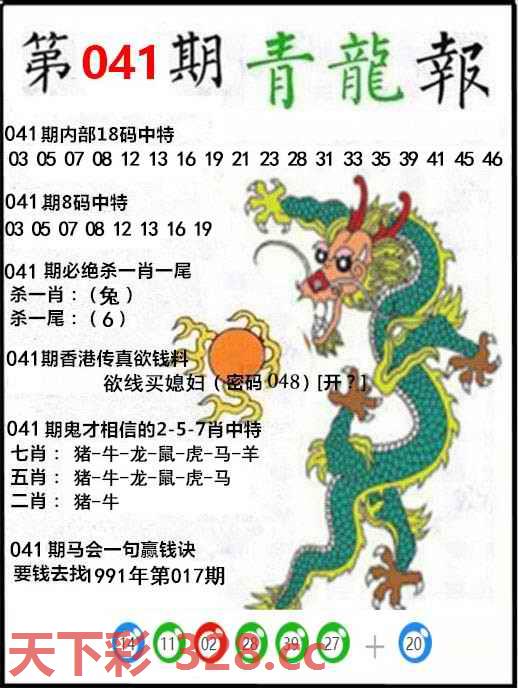 第041期青龍報
041期内部18码中特
03 05 07 08 12 13 16 19 21 23 28 31 33 35 39 41 45 46
041期8码中特
03 05 07 08 12 13 16 19
041期必绝杀一肖一尾
杀一肖：（兔）
杀一尾：（6）
041期香港传真欲钱料
欲线买媳妇（密码048）[开？]
041期鬼才相信的2-5-7肖中特
七肖：猪-牛-龙-鼠-虎-马-羊
五肖：猪-牛-龙-鼠-虎-马
二肖：猪-牛
041期马会一句赢钱诀
要钱去找1991年第017期
14 11 02 28 39 27 + 20
天下彩 328.cc